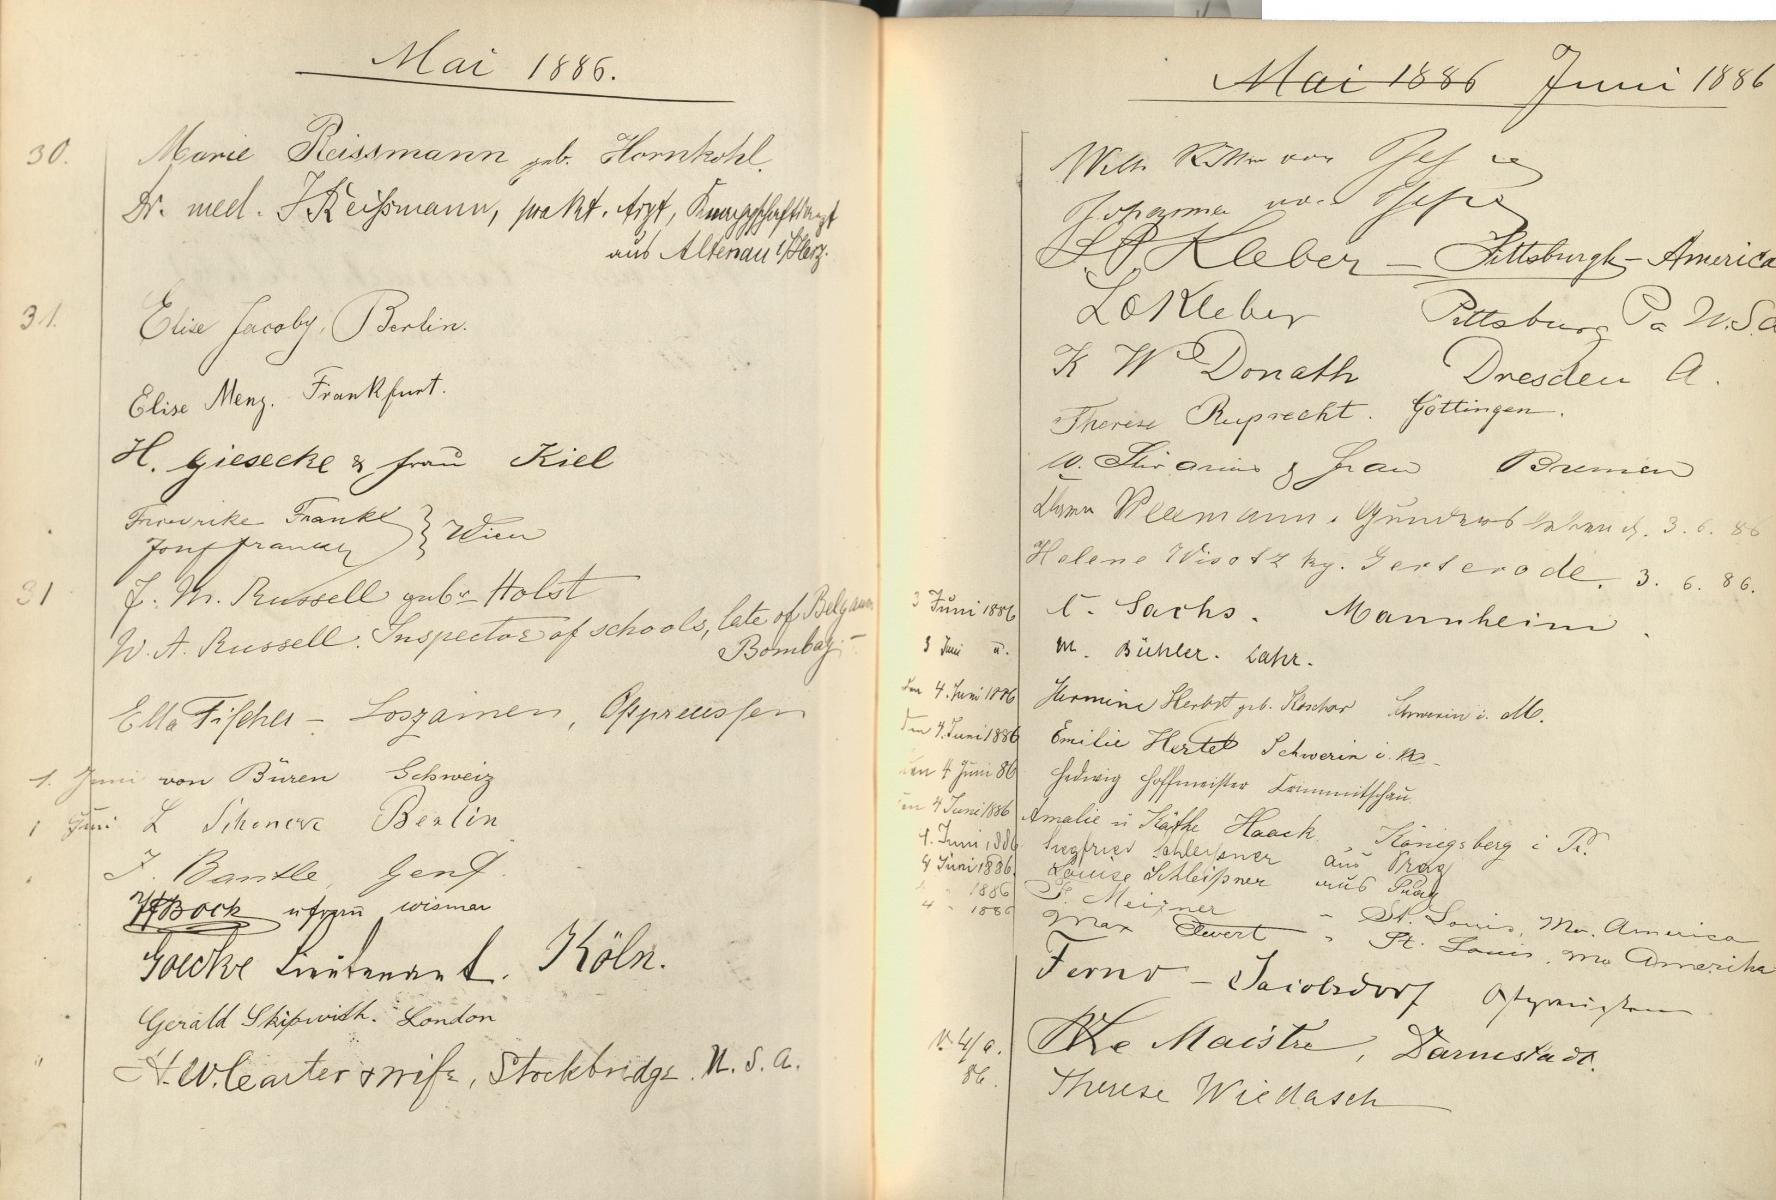 Mai 1886.
30. Marie Reissmann geb. Hornkohl.
Dr. med. J Reißmann, prakt. Arzt, Knappschaftsarzt
aus Altenau i/Harz.
31. Elise Jacoby, Berlin.
Elise Menz. Frankfurt.
H. Giesecke & Frau Kiel
Friederike Frankl } Wien
Josef
31 J. M. Russell geb. Holst
W. A. Russell. Inspector of schools, late of Belgaum
Bombay
Ella Fischer - Loszainen, Ostpreussen
1. Juni von Büren Schweiz
1 Juni L Berlin
J. Bantle, Genf.
Bock u frau Wismar
Goecke Lieutenant. Köln.
Gerald Skipwith. London
H. W. Carter & wife, Stockbridge. U. S. A.
Mai 1886 Juni 1886
Wilh von
Johanna von
Kleber - Pittsburgh - America
Kleber Pittsburg Pa U.S.A
K W Donath Dresden A.
Therese Ruprecht. Göttingen.
W. & Frau Bremen
3. 6. 86
Helene Wisotzky. Gerterode. 3. 6. 86.
3 Juni 1886 Sachs. Mannheim.
3 Juni M. Bühler. Lahr.
den 4. Juni 1886 Hermine Herbst geb. Schwerin i. M.
den 4. Juni 1886 Emilie Hertel Schwerin i. M.
den 4 Juni 86 Hedwig Hoffmeister Crimmitschau
den 4 Juni 1886 Amalie u Käthe Haack. Königsberg i Pr.
4. Juni 1886 Siegfried Schleißner aus Prag
4 Juni 1886. Louise Schleißner aus Prag
4 " 1886 Meixner - St. Louis, Mo. America
4 " 1886 Max Evert " St. Louis, Mo Amerika
Ferno - Jacobsdorf Ostpreußen
4/6. Le Maistre, Darmstadt.
86. Therese Wiedasch